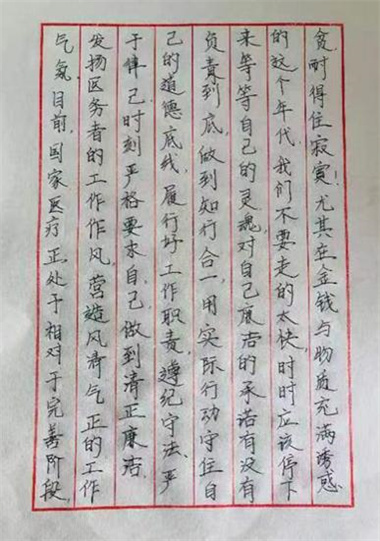 贪，耐得住寂寞！尤其在金钱与物质充满诱惑
的这个年代，我们不要走的太快，时时应该停下
来等等自己的灵魂，对自己廉洁的承诺有没有
负责到底，做到知行合一，用实际行动守住自
己的道德底线，履行好工作职责，遵纪守法、严
于律己，时刻严格要求自己，做到清正廉洁，
发扬医务者的工作作风，营造风清气正的工作
气氛。目前，国家医疗正处于相对于完善阶段，